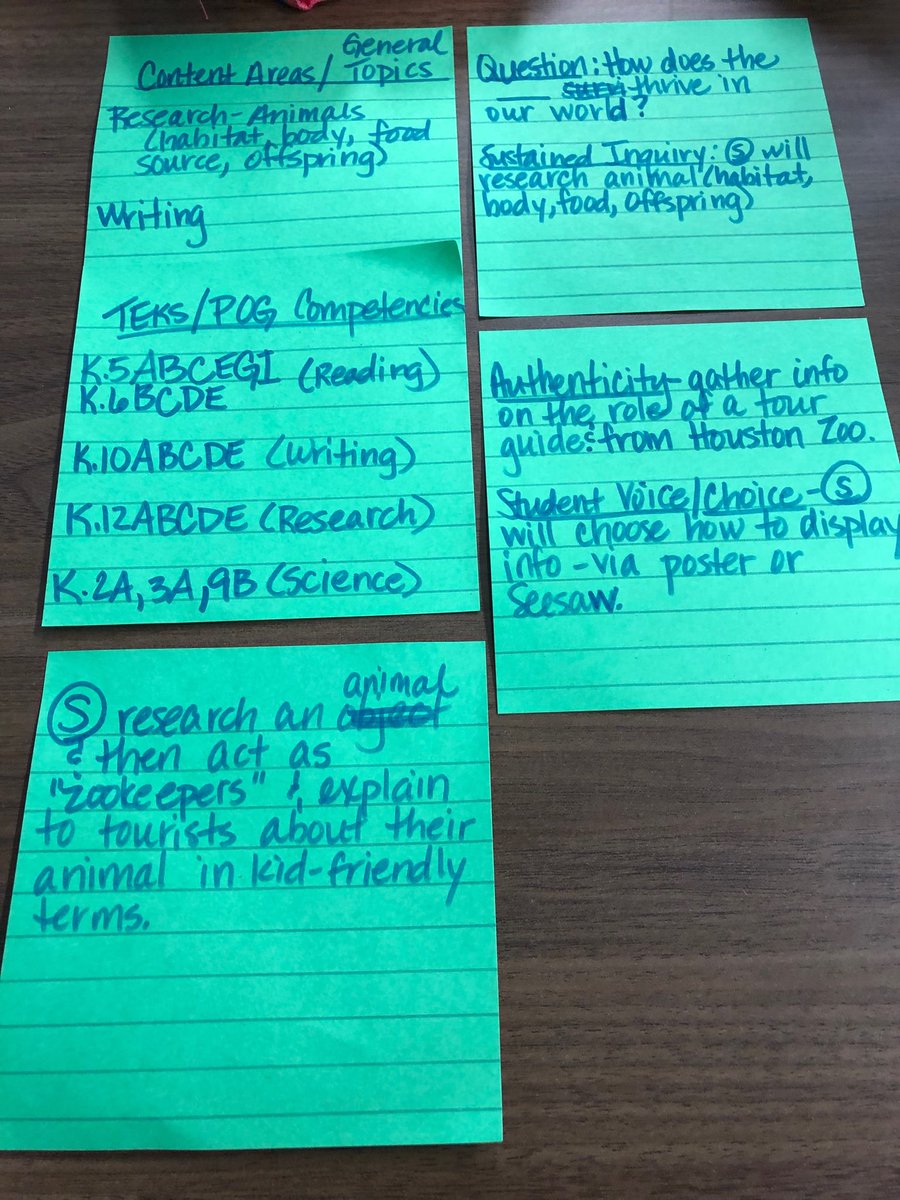 General
Content Areas/ Topics
Research-Animals
(habitat, body, food
source, offspring)
Writing
TEKS/POG Competencies
K.5ABCEGI (Reading)
K.6BCDE
K.10ABCDE (Writing)
K.12ABCDE (Research)
K.2A, 3A, 9B (Science)
Ⓢ research an animal
& then act as
"zookeepers" & explain
to tourists about their
animal in kid-friendly
terms.
Question: How does the
___ thrive in
our world?
Sustained Inquiry: Ⓢ will
research animal (habitat,
body, food, offspring)
Authenticity-gather info
on the role of a tour
guide & from Houston Zoo.
Student Voice/Choice-Ⓢ
will choose how to display
info-via poster or
Seesaw.